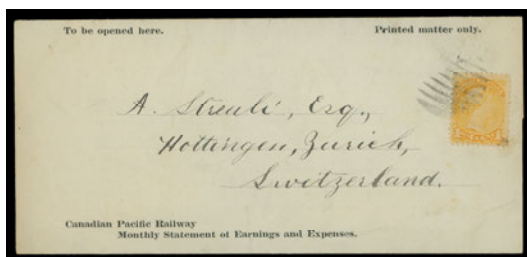 To be opened here.
Printed matter only.
A. Streuli, Esq.,
Hottingen, Zurich,
Switzerland.
Canadian Pacific Railway
Monthly Statement of Earnings and Expenses.